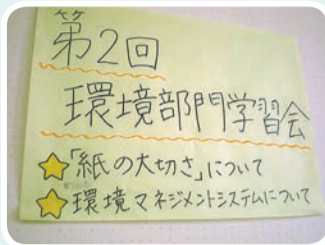 第2回
環境部門学習会
「紙の大切さ」について
環境マネジメントシステムについて